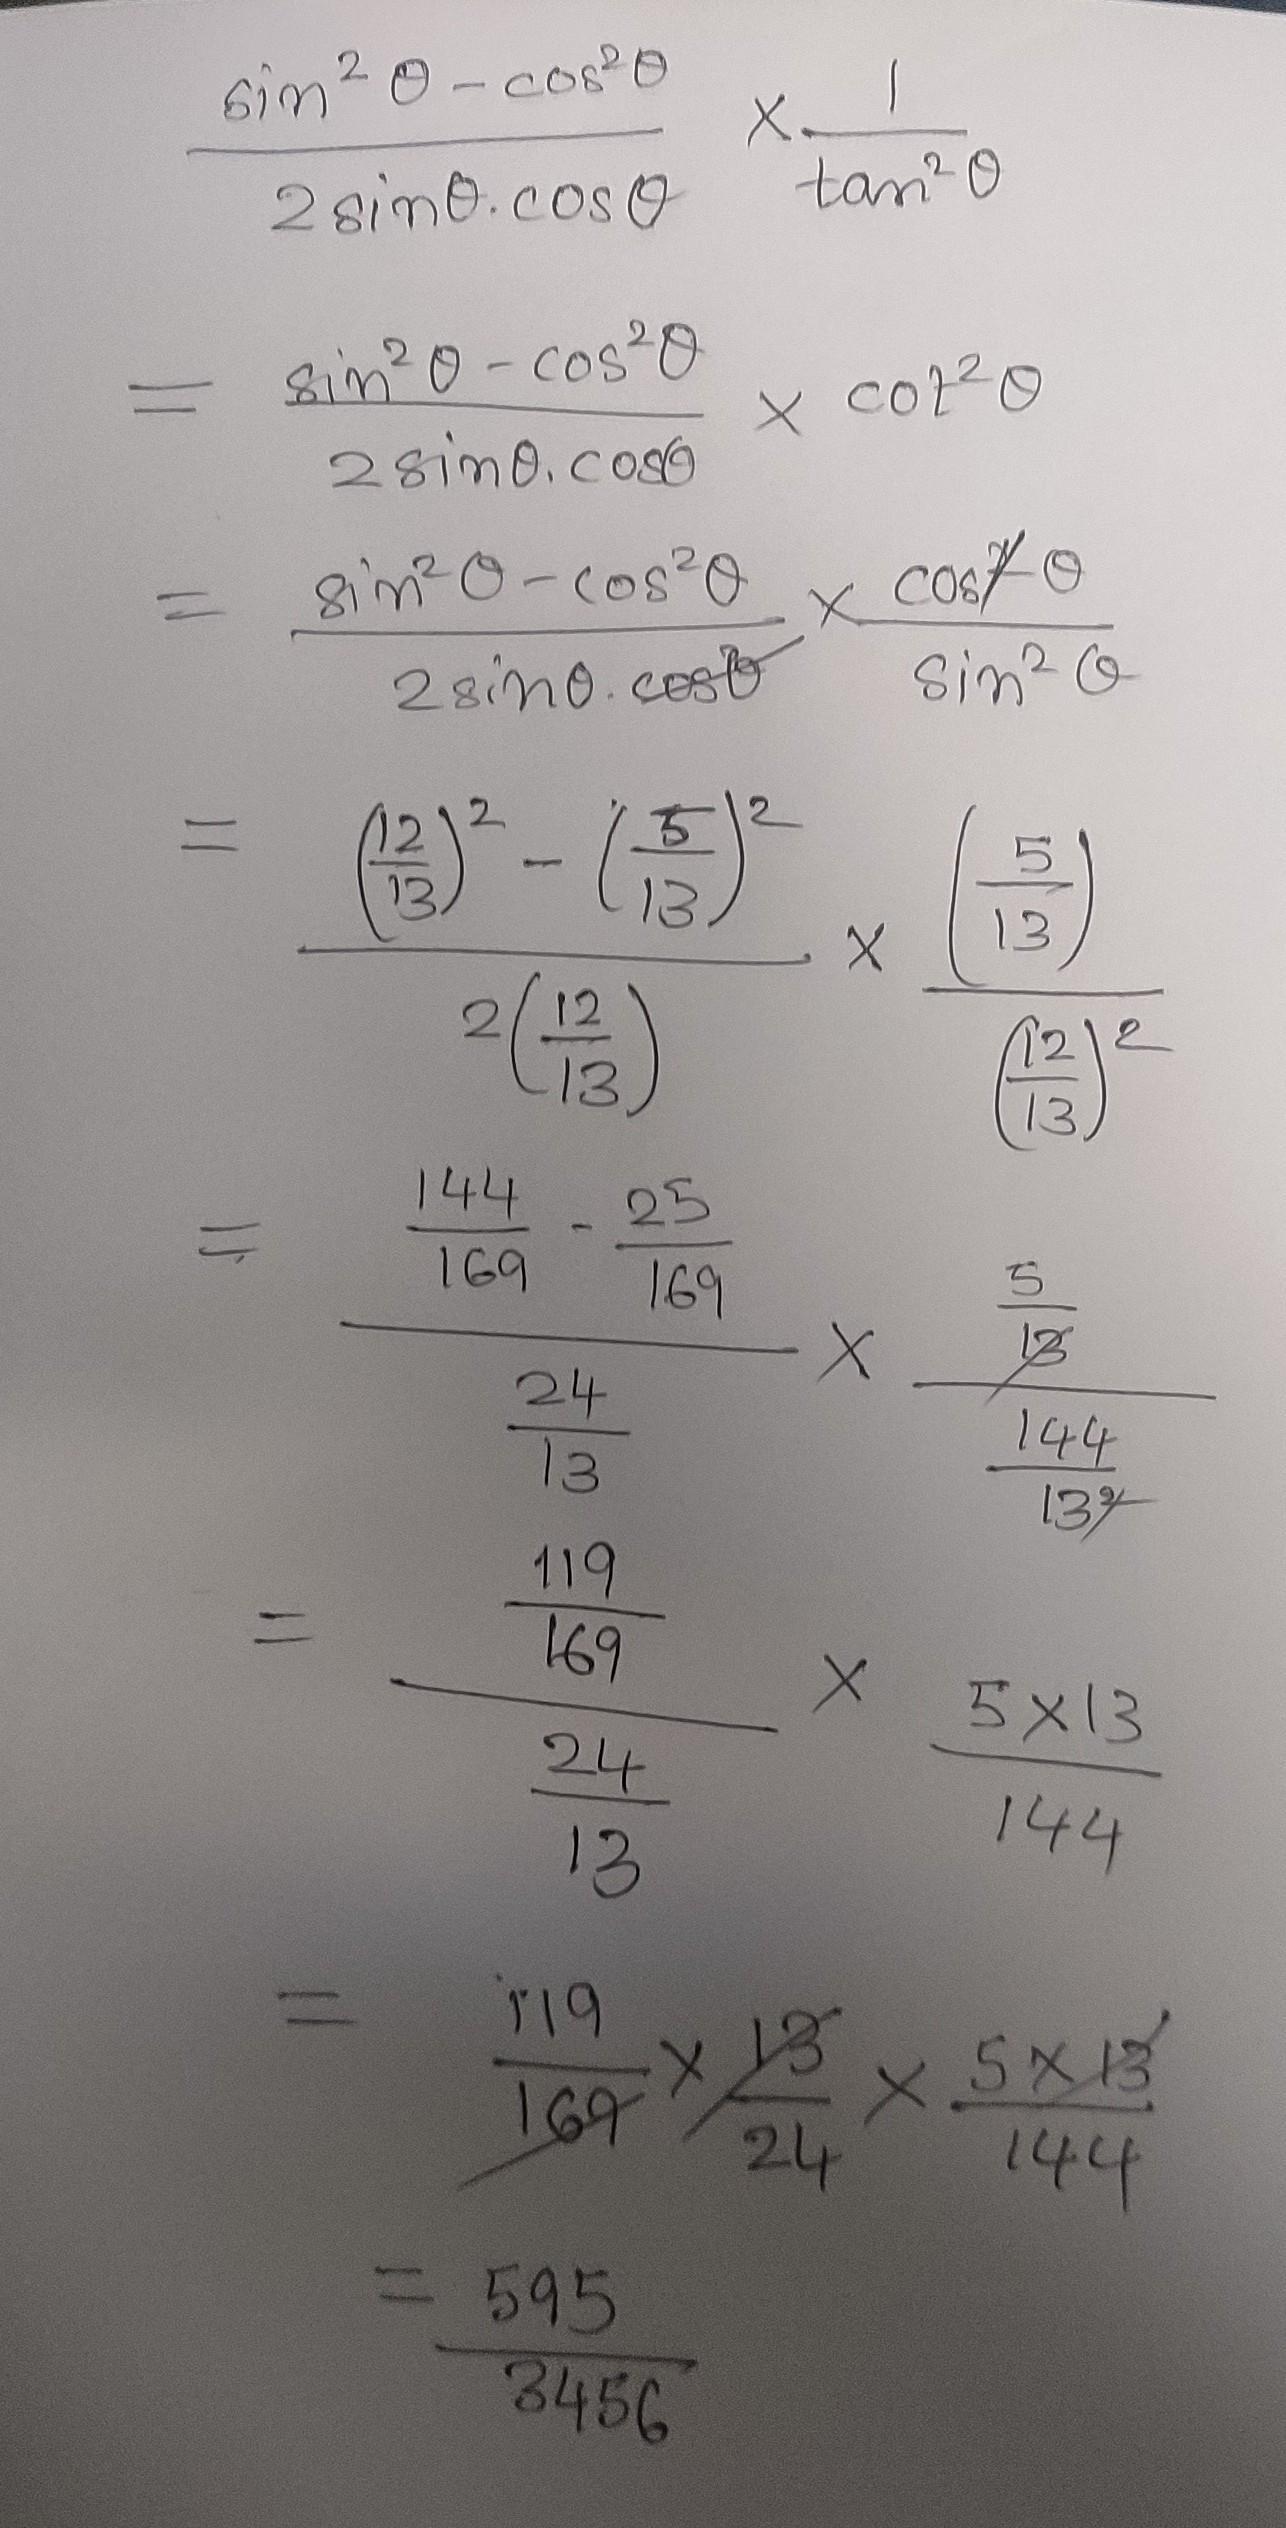 sin²θ - cos²θ / 2sinθ.cosθ × 1/tan²θ
= sin²θ - cos²θ / 2sinθ.cosθ × cot²θ
= sin²θ - cos²θ / 2sinθ.cosθ × cos²θ / sin²θ
= (12/13)² - (5/13)² / 2(12/13) × (5/13) / (12/13)²
= 144/169 - 25/169 / 24/13 × 5/13 / 144/13²
= 119/169 / 24/13 × 5×13 / 144
= 119/169 × 13/24 × 5×13/144
= 595/3456